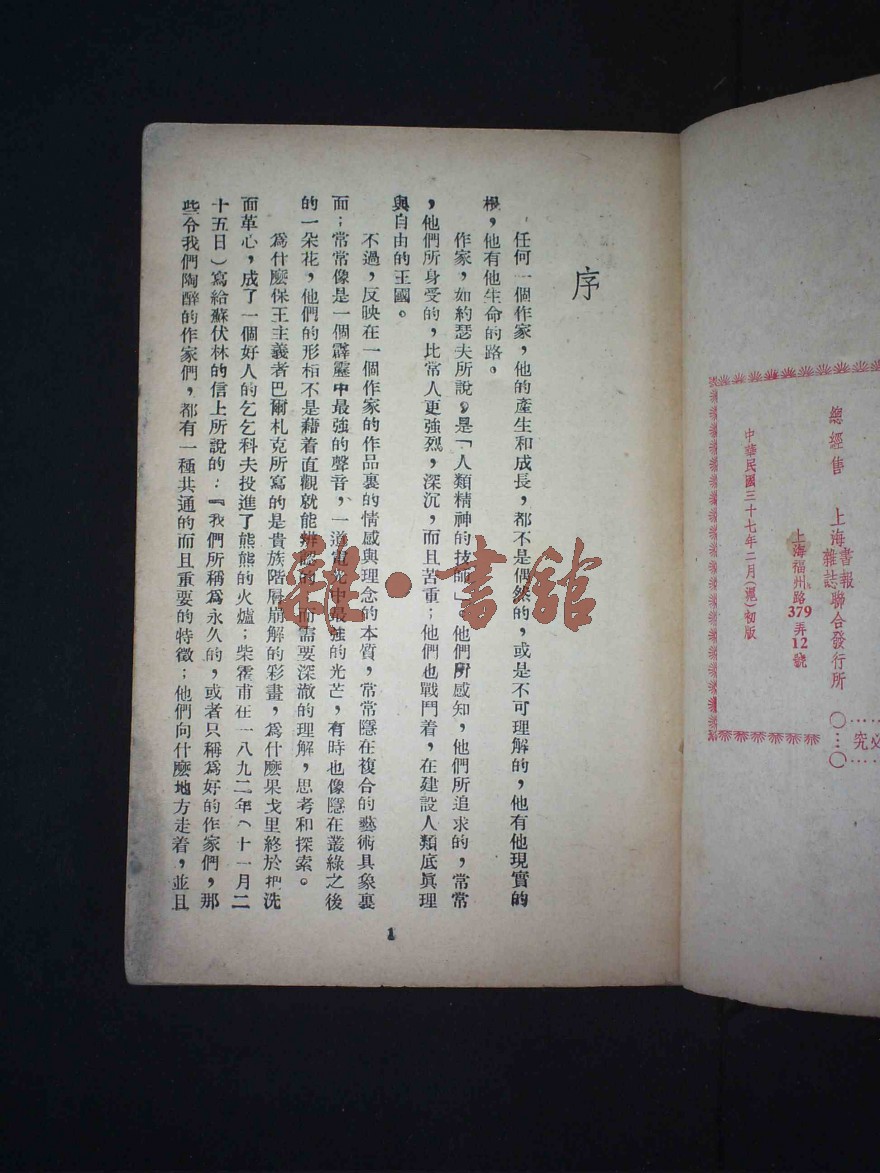 總經售
上海書報
雜誌聯合發行所
上海福州路379弄12號
中華民國三十七年二月(滬)初版
究
序
任何一個作家，他的產生和成長，都不是偶然的，或是不可理解的，他有他現實的
根，他有他生命的路。
作家，如約瑟夫所說，是「人類精神的技師」，他們所感知，他們所追求的，常常
，他們所身受的，比常人更強烈，深沉，而且苦重；他們也戰鬥着，在建設人類底眞理
與自由的王國。
不過，反映在一個作家的作品裏的情感與理念的本質，常常隱在複合的藝術具象裏
面；常常像是一個霹靂中最強的聲音，一道電光中最強的光芒，有時也像隱在叢綠之後
的一朵花，他們的形相不是藉着直觀就能辨認的，而需要深澈的理解，思考和探索。
爲什麽保王主義者巴爾札克所寫的是貴族階層崩解的彩畫，爲什麽果戈里終於把洗
面革心，成了一個好人的乞乞科夫投進了熊熊的火爐；柴霍甫在一八九二年（十一月二
十五日）寫給蘇伏林的信上所說的：『我們所稱爲永久的，或者只稱爲好的作家們，那
些令我們陶醉的作家們，都有一種共通的而且重要的特徵；他們向什麽地方走着，並且
1
雜·書舘